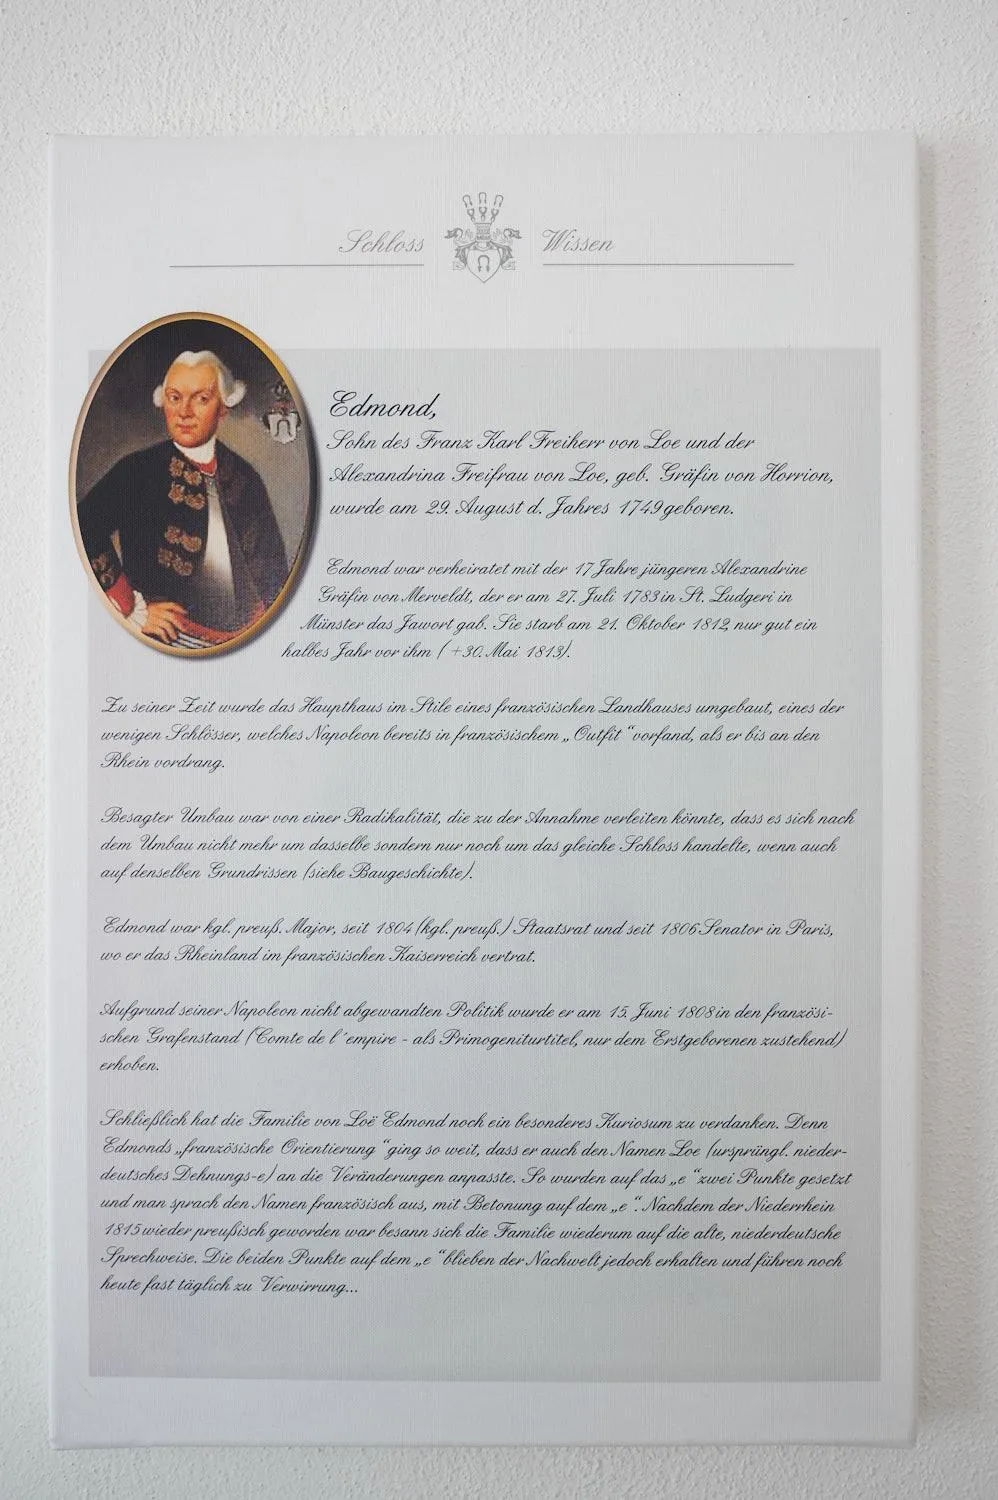 Schloss Wissen
Edmond,
Sohn des Franz Karl Freiherr von Loe und der
Alexandrina Freifrau von Loe, geb. Gräfin von Horrion,
wurde am 29. August d. Jahres 1749 geboren.
Edmond war verheiratet mit der 17 Jahre jüngeren Alexandrine
Gräfin von Merveldt, der er am 27. Juli 1783 in St. Ludgeri in
Münster das Jawort gab. Sie starb am 21. Oktober 1812, nur gut ein
halbes Jahr vor ihm ( +30. Mai 1813).
Zu seiner Zeit wurde das Haupthaus im Stile eines französischen Landhauses umgebaut, eines der
wenigen Schlösser, welches Napoleon bereits in französischem „Outfit“ vorfand, als er bis an den
Rhein vordrang.
Besagter Umbau war von einer Radikalität, die zu der Annahme verleiten könnte, dass es sich nach
dem Umbau nicht mehr um dasselbe sondern nur noch um das gleiche Schloss handelte, wenn auch
auf denselben Grundrissen (siehe Baugeschichte).
Edmond war kgl. preuß. Major, seit 1804 (kgl. preuß.) Staatsrat und seit 1806 Senator in Paris,
wo er das Rheinland im französischen Kaiserreich vertrat.
Aufgrund seiner Napoleon nicht abgewandten Politik wurde er am 15. Juni 1808 in den französi-
schen Grafenstand (Comte de l´empire - als Primogeniturtitel, nur dem Erstgeborenen zustehend)
erhoben.
Schließlich hat die Familie von Loë Edmond noch ein besonderes Kuriosum zu verdanken. Denn
Edmonds „französische Orientierung“ ging so weit, dass er auch den Namen Loe (ursprüngl. nieder-
deutsches Dehnungs-e) an die Veränderungen anpasste. So wurden auf das „e“ zwei Punkte gesetzt
und man sprach den Namen französisch aus, mit Betonung auf dem „e“. Nachdem der Niederrhein
1815 wieder preußisch geworden war besann sich die Familie wiederum auf die alte, niederdeutsche
Sprechweise. Die beiden Punkte auf dem „e“ blieben der Nachwelt jedoch erhalten und führen noch
heute fast täglich zu Verwirrung...